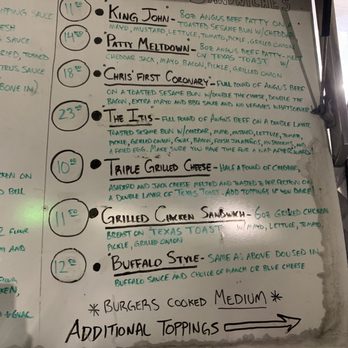 PPING SAUCE
SH
RIED, TOSSED
TRUS SAUCE
BOVE IN)
KEN ON
D BELL
2 FLOUR
M AND
KEN,
+ GUAC
SANDWICHES
11.00 • KING JOHN - 8OZ ANGUS BEEF PATTY ON
TOASTED SESAME BUN W/CHEDDAR
MAYO, MUSTARD, LETTUCE, TOMATO, PICKLE, GRILLED ONION
14.00 • PATTY MELTDOWN - 8OZ ANGUS BEEF PATTY
ON TEXAS TOAST W/
CHEDDAR JACK, MAYO, BACON, PICKLE, GRILLED ONION
18.00 • CHRIS' FIRST CORONARY - FULL POUND OF ANGUS BEEF
ON A TOASTED SESAME BUN W/DOUBLE THE CHEESE, DOUBLE THE
BACON, EXTRA MAYO AND BBQ SAUCE AND NO VEGGIES WHATSOEVER
23.00 • THE ITIS - FULL POUND OF ANGUS BEEF ON A DOUBLE LAYER
TOASTED SESAME BUN W/CHEDDAR, MAYO, MUSTARD, LETTUCE, TOMATO,
PICKLE, GRILLED ONION, GUAC, BACON, FRESH JALAPEÑOS, MUSHROOMS, AND
A FRIED EGG. MAKE SURE YOU HAVE TIME FOR A NAP AFTERWARD!
10.00 • TRIPLE GRILLED CHEESE - HALF A POUND OF CHEDDAR,
ASADERO AND JACK CHEESE MELTED AND TOASTED TO PERFECTION ON
A DOUBLE LAYER OF TEXAS TOAST. ADD TOPPINGS IF YOU DARE!
11.00 • GRILLED CHICKEN SANDWICH - 6OZ GRILLED CHICKEN
BREAST ON TEXAS TOAST W/MAYO, LETTUCE, TOMATO
PICKLE, GRILLED ONION
12.00 • BUFFALO STYLE - SAME AS ABOVE DOUSED IN
BUFFALO SAUCE AND CHOICE OF RANCH OR BLUE CHEESE
* BURGERS COOKED MEDIUM *
ADDITIONAL TOPPINGS →